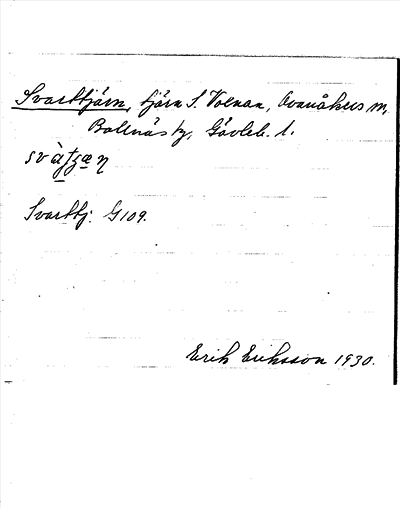 Svarttjärn, tjärn S. Voxnan, Ovanåkers m,
Bollnäs tg, Gävleb. l.
Svarttj: G 109.
Erik Eriksson 1930.